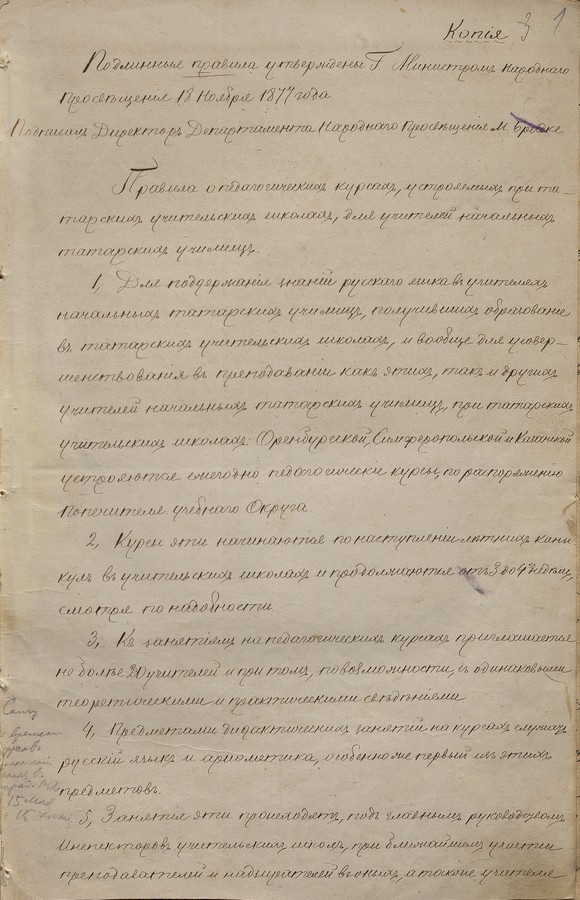 Копія 3 1
Подлинныя правила утверждены Г. Министромъ Народнаго
Просвѣщенія 18 Ноября 1877 года
Подписалъ Директоръ Департамента Народнаго Просвѣщенія М. Брадке
Правила о педагогическихъ курсахъ, устрояемыхъ при та-
тарскихъ учительскихъ школахъ, для учителей начальныхъ
татарскихъ училищъ.
1, Для поддержанія знаній русскаго языка въ учителяхъ
начальныхъ татарскихъ училищъ, получившихъ образованіе
въ татарскихъ учительскихъ школахъ, и вообще для усовер-
шенствованія въ преподаваніи какъ этихъ, такъ и другихъ
учителей начальныхъ татарскихъ училищъ, при татарскихъ
учительскихъ школахъ: Оренбургской, Симферопольской и Казанской
устрояются ежегодно педагогическіе курсы, по распоряженію
Попечителя учебнаго Округа.
2, Курсы эти начинаются по наступленіи лѣтнихъ кани-
кулъ въ учительскихъ школахъ и продолжаются отъ 3 до 4 недѣль,
смотря по надобности
3, Къ занятіямъ на педагогическихъ курсахъ приглашается
не болѣе 20 учителей и при томъ, по возможности, съ одинаковыми
теоретическими и практическими свѣдѣніями
4, Предметами дидактическихъ занятій на курсахъ служатъ
русскій языкъ и ариѳметика, особенно же первый изъ этихъ
предметовъ.
15 Мая
15
5, Занятія эти происходятъ, подъ главнымъ руководствомъ
Инспекторовъ учительскихъ школъ, при ближайшемъ участіи
преподавателей и надзирателей въ оныхъ, а также учителя